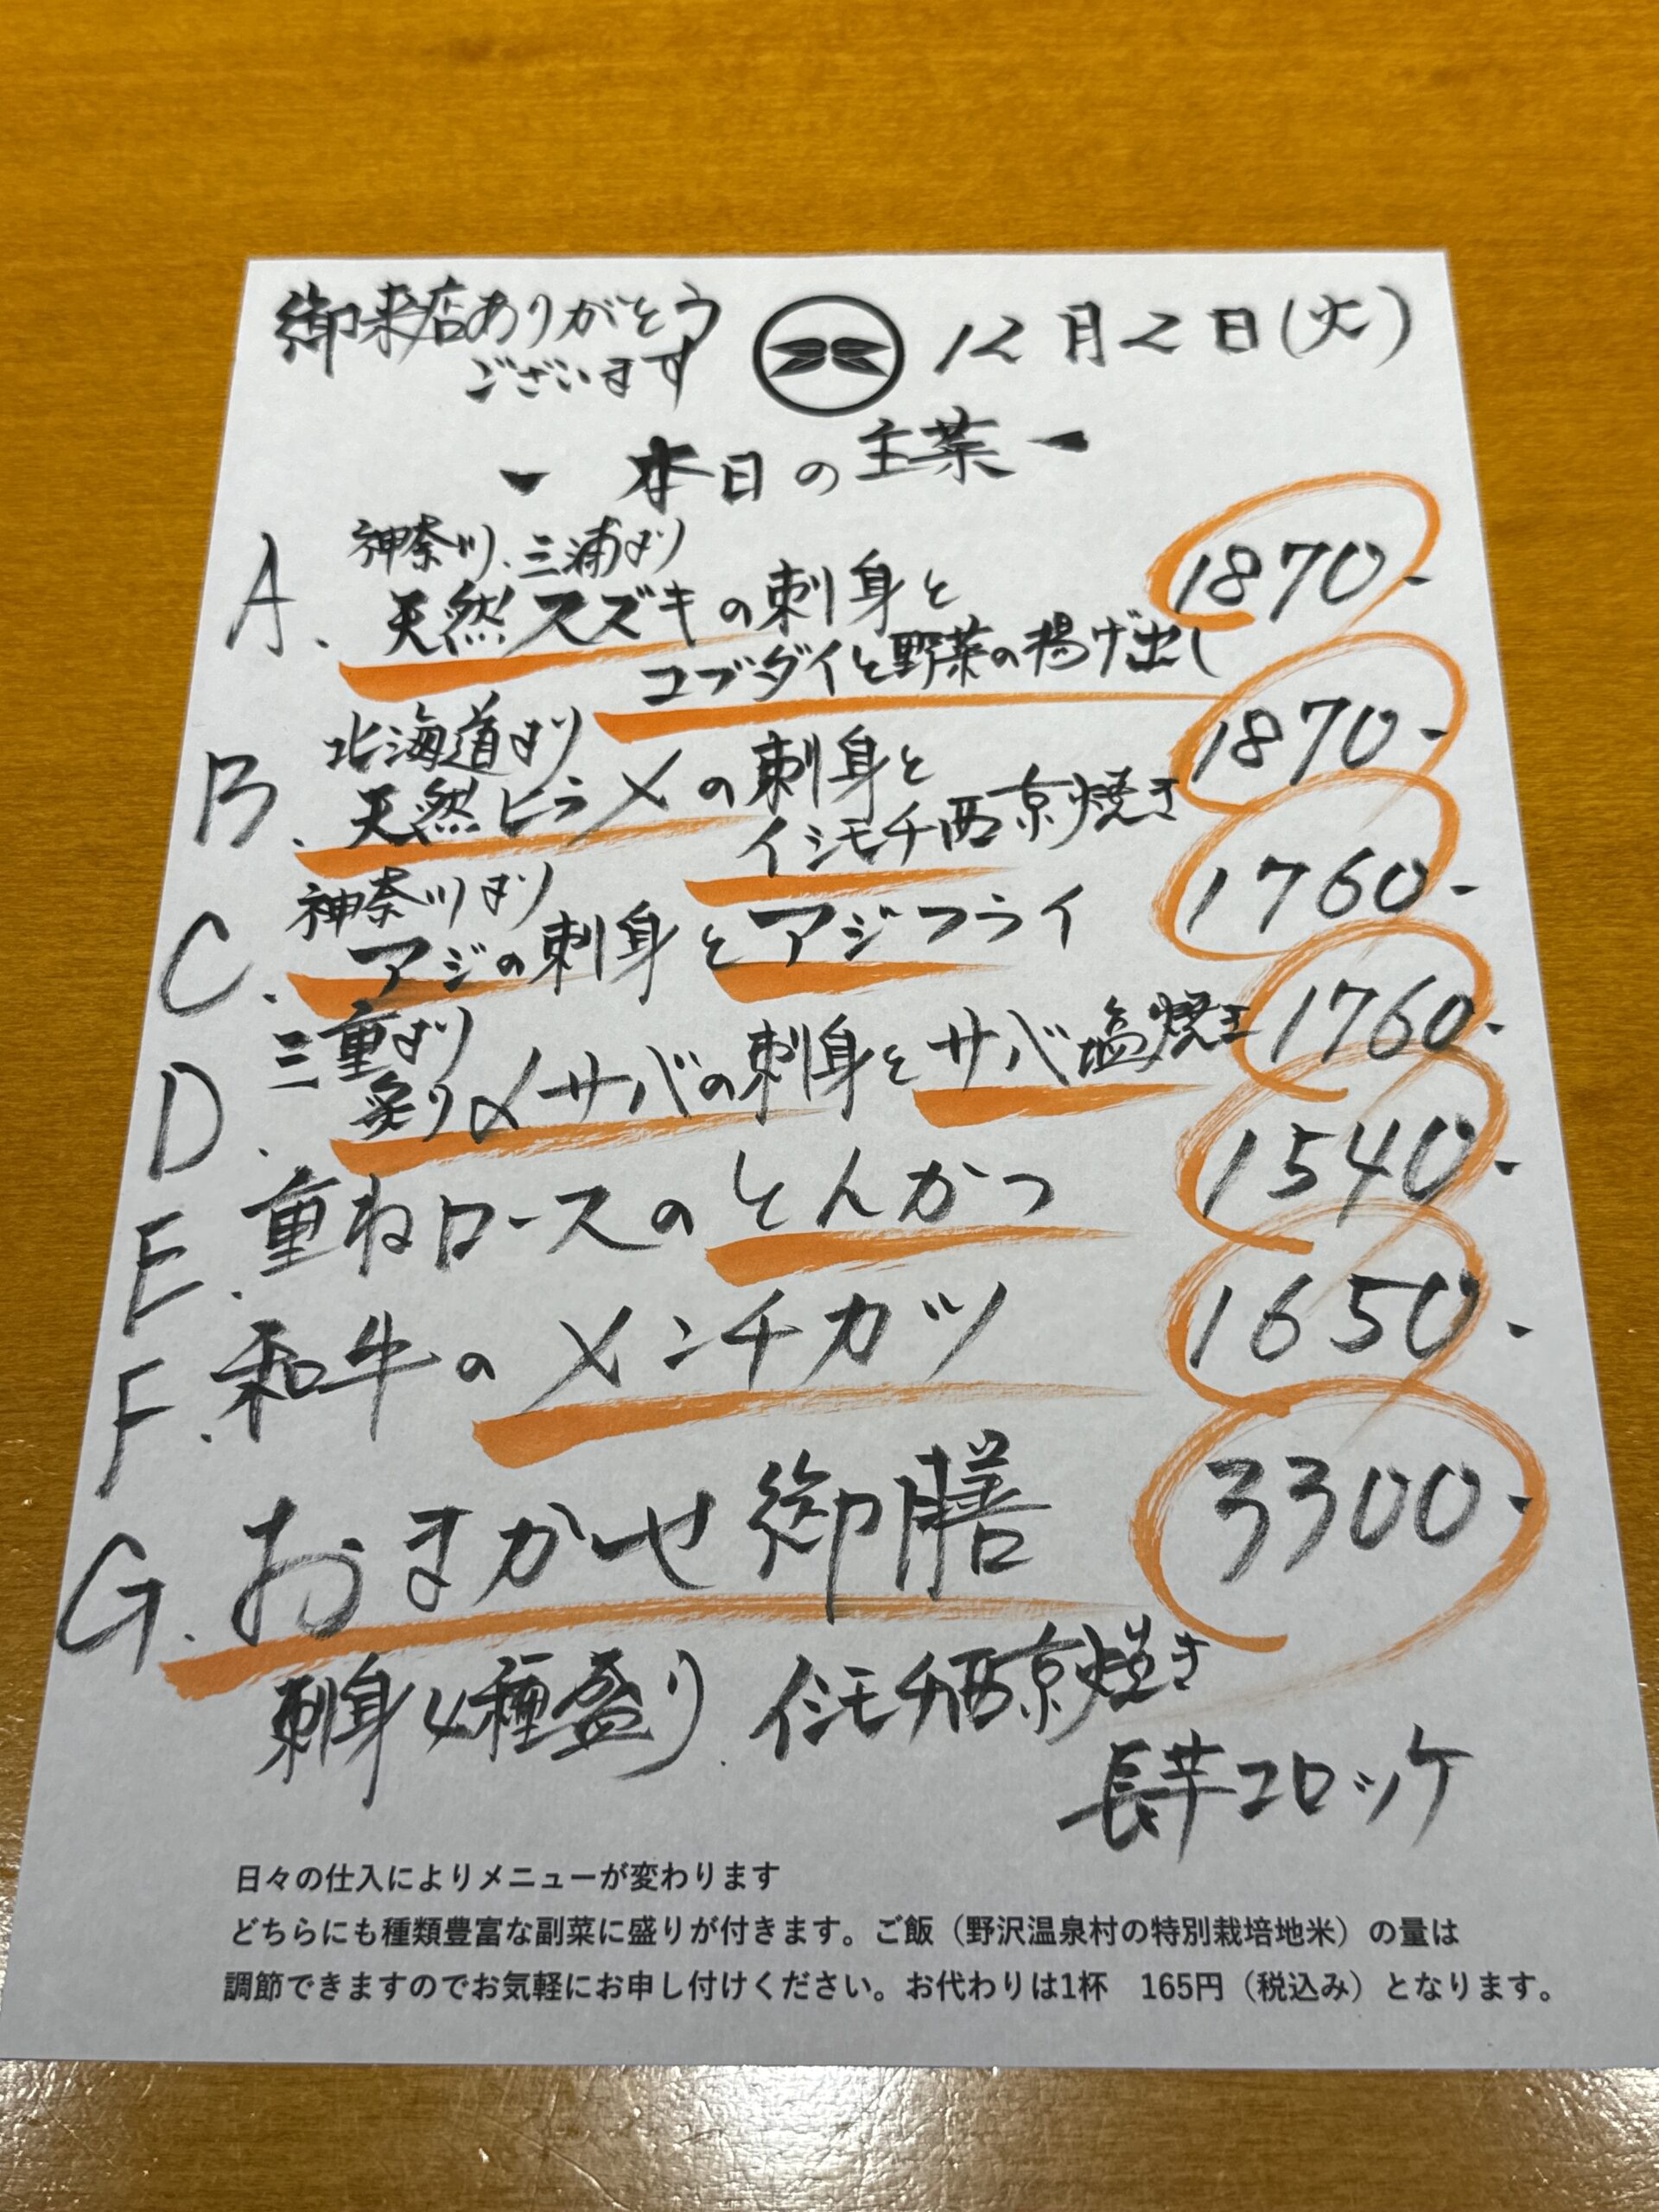 御来店ありがとう
ございます
12月2日(火)
- 本日の主菜 -
A. 神奈川、三浦より
天然スズキの刺身と
コブダイと野菜の揚げ出し
1870-
B. 北海道より
天然ヒラメの刺身と
イシモチ西京焼き
1870-
C. 神奈川より
アジの刺身とアジフライ
1760-
D. 三重より
炙り〆サバの刺身とサバ塩焼き
1760-
E. 重ねロースのとんかつ
1540-
F. 和牛のメンチカツ
1650-
G. おまかせ御膳
3300-
刺身4種盛り、イシモチ西京焼き
長芋コロッケ
日々の仕入によりメニューが変わります
どちらにも種類豊富な副菜に盛りが付きます。ご飯（野沢温泉村の特別栽培地米）の量は
調節できますのでお気軽にお申し付けください。お代わりは1杯　165円（税込み）となります。